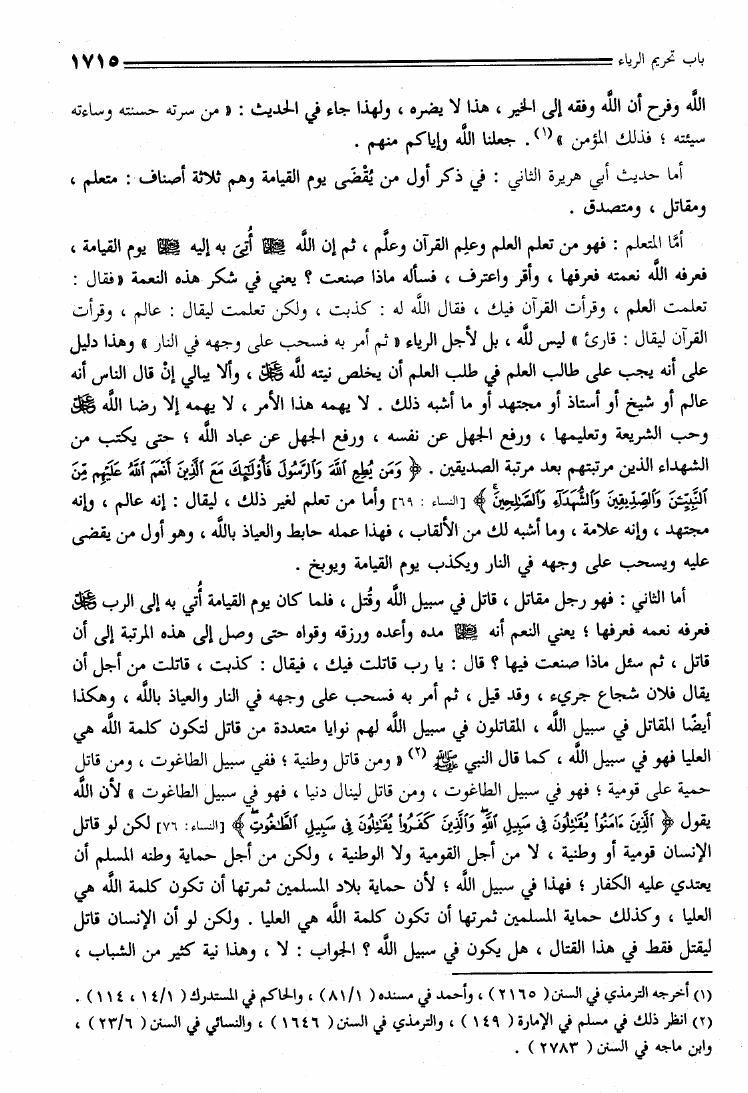 باب تحريم الرياء ١٧١٥
اللَّه وفرح أن اللَّه وفقه إلى الخير ، هذا لا يضره ، ولهذا جاء في الحديث : « من سرته حسنته وساءته
سيئته ؛ فذلك المؤمن » (١) . جعلنا اللَّه وإياكم منهم .
أما حديث أبي هريرة الثاني : في ذكر أول من يُقْضَى يوم القيامة وهم ثلاثة أصناف : متعلم ،
ومقاتل ، ومتصدق .
أمَّا المتعلم : فهو من تعلم العلم وعلِم القرآن وعلَّم ، ثم إن اللَّه ﷻ أُتِيَ به إليه ﷻ يوم القيامة ،
فعرفه اللَّه نعمته فعرفها ، وأقر واعترف ، فسأله ماذا صنعت ؟ يعني في شكر هذه النعمة « فقال :
تعلمت العلم ، وقرأت القرآن فيك ، فقال اللَّه له : كذبت ، ولكن تعلمت ليقال : عالم ، وقرأت
القرآن ليقال : قارئ » ليس للَّه ، بل لأجل الرياء « ثم أمر به فسحب على وجهه في النار » وهذا دليل
على أنه يجب على طالب العلم في طلب العلم أن يخلص نيته للَّه ﷻ ، وألا يبالي إنْ قال الناس أنه
عالم أو شيخ أو أستاذ أو مجتهد أو ما أشبه ذلك . لا يهمه هذا الأمر ، لا يهمه إلا رضا اللَّه ﷻ
وحب الشريعة وتعليمها ، ورفع الجهل عن نفسه ، ورفع الجهل عن عباد اللَّه ؛ حتى يكتب من
الشهداء الذين مرتبتهم بعد مرتبة الصديقين . ﴿ وَمَن يُطِعِ اللَّهَ وَالرَّسُولَ فَأُوْلَٰٓئِكَ مَعَ الَّذِينَ أَنْعَمَ اللَّهُ عَلَيْهِم مِّنَ
النَّبِيِّـۧنَ وَالصِّدِّيقِينَ وَالشُّهَدَآءِ وَالصَّٰلِحِينَ ﴾ [النساء : ٦٩] وأما من تعلم لغير ذلك ، ليقال : إنه عالم ، وإنه
مجتهد ، وإنه علامة ، وما أشبه لك من الألقاب ، فهذا عمله حابط والعياذ باللَّه ، وهو أول من يقضى
عليه ويسحب على وجهه في النار ويكذب يوم القيامة ويوبخ .
أما الثاني : فهو رجل مقاتل ، قاتل في سبيل اللَّه وقُتل ، فلما كان يوم القيامة أُتي به إلى الرب ﷻ
فعرفه نعمه فعرفها ؛ يعني النعم أنه ﷻ مده وأعده ورزقه وقواه حتى وصل إلى هذه المرتبة إلى أن
قاتل ، ثم سئل ماذا صنعت فيها ؟ قال : يا رب قاتلت فيك ، فيقال : كذبت ، قاتلت من أجل أن
يقال فلان شجاع جريء ، وقد قيل ، ثم أمر به فسحب على وجهه في النار والعياذ باللَّه ، وهكذا
أيضًا المقاتل في سبيل اللَّه ، المقاتلون في سبيل اللَّه لهم نوايا متعددة من قاتل لتكون كلمة اللَّه هي
العليا فهو في سبيل اللَّه ، كما قال النبي ﷺ (٢) « ومن قاتل وطنية ؛ ففي سبيل الطاغوت ، ومن قاتل
حمية على قومية ؛ فهو في سبيل الطاغوت ، ومن قاتل لينال دنيا ، فهو في سبيل الطاغوت » لأن اللَّه
يقول ﴿ الَّذِينَ ءَامَنُوا يُقَٰتِلُونَ فِى سَبِيلِ اللَّهِ وَالَّذِينَ كَفَرُوا يُقَٰتِلُونَ فِى سَبِيلِ الطَّٰغُوتِ ﴾ [النساء: ٧٦] لكن لو قاتل
الإنسان قومية أو وطنية ، لا من أجل القومية ولا الوطنية ، ولكن من أجل حماية وطنه المسلم أن
يعتدي عليه الكفار ؛ فهذا في سبيل اللَّه ؛ لأن حماية بلاد المسلمين ثمرتها أن تكون كلمة اللَّه هي
العليا ، وكذلك حماية المسلمين ثمرتها أن تكون كلمة اللَّه هي العليا . ولكن لو أن الإنسان قاتل
ليقتل فقط في هذا القتال ، هل يكون في سبيل اللَّه ؟ الجواب : لا ، وهذا نية كثير من الشباب ،
(١) أخرجه الترمذي في السنن ( ٢١٦٥ ) ، وأحمد في مسنده ( ٨١/١ ) ، والحاكم في المستدرك ( ١٤/١ ، ١١٤ ) .
(٢) انظر ذلك في مسلم في الإمارة ( ١٤٩ ) ، والترمذي في السنن ( ١٦٤٦ ) ، والنسائي في السنن ( ٢٣/٦ ) ،
وابن ماجه في السنن ( ٢٧٨٣ ) .